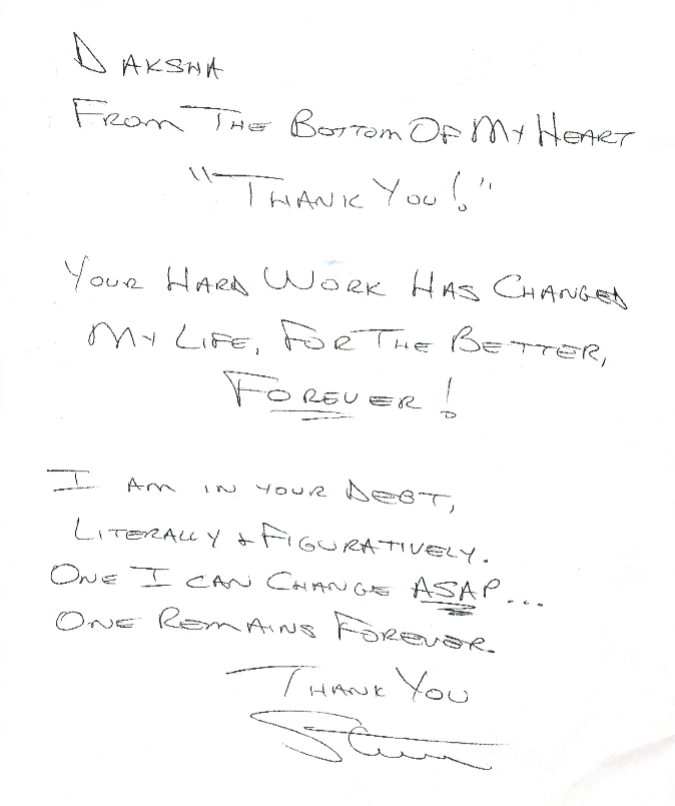 DAKSHA
FROM THE BOTTOM OF MY HEART
"THANK YOU!"
YOUR HARD WORK HAS CHANGED
MY LIFE, FOR THE BETTER,
FOREVER!
I AM IN YOUR DEBT,
LITERALLY & FIGURATIVELY.
ONE I CAN CHANGE ASAP...
ONE REMAINS FOREVER.
THANK YOU